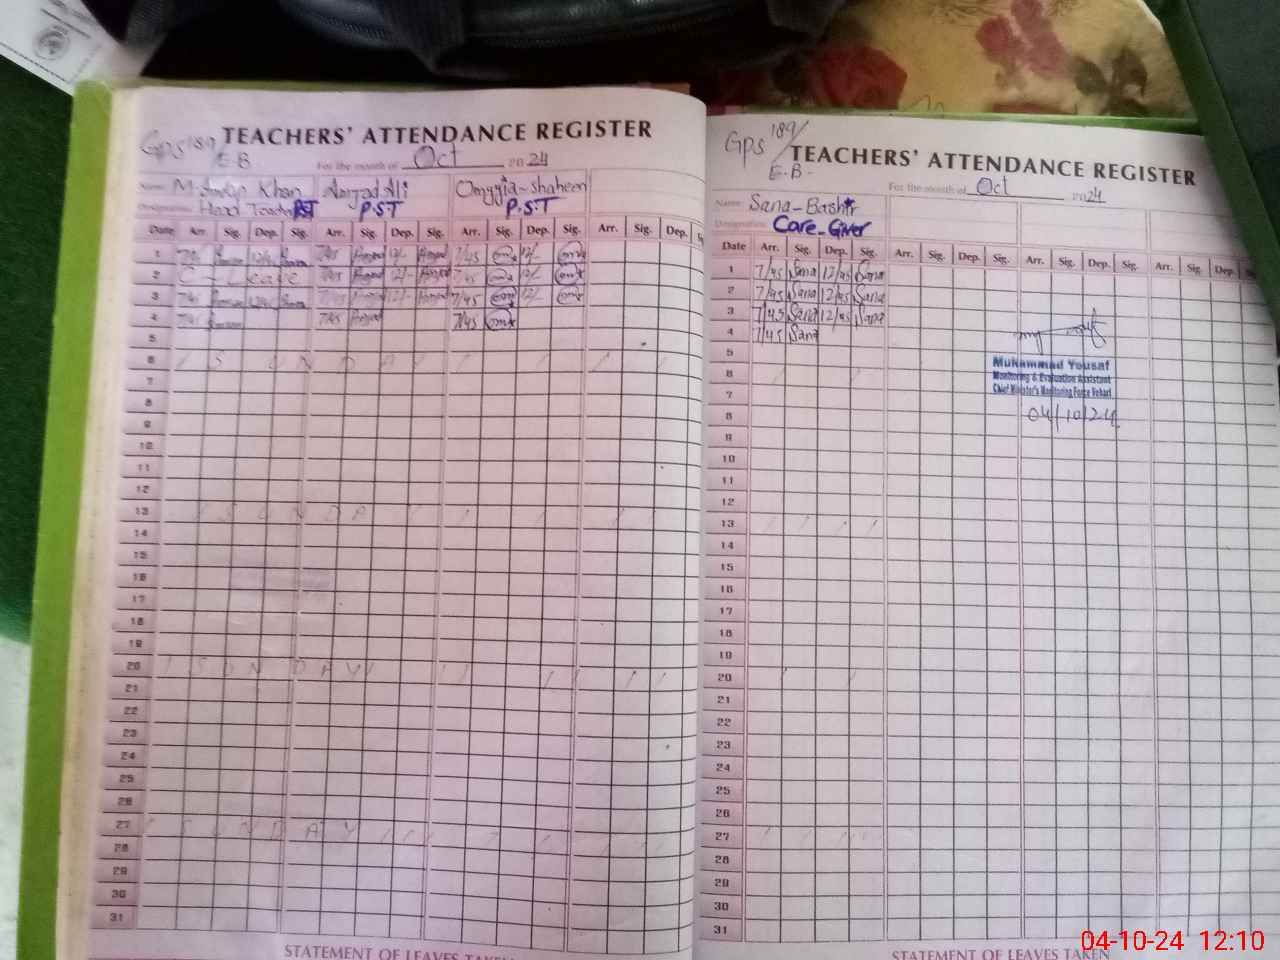 Gps 189/
E.B
TEACHERS' ATTENDANCE REGISTER
For the month of Oct 2024
Name Khan Amjad Ali Omyyia-Shaheen
Designation Head Teacher PST P.S.T P.S.T
Date Arr. Sig. Dep. Sig. Arr. Sig. Dep. Sig. Arr. Sig. Dep. Sig. Arr. Sig. Dep.
1 7/45 12/45 7/45 Amjad 12/- Amjad 7/45 12/-
2 C Leave 7/45 Amjad 12/- Amjad 7/45 12/-
3 7/45 12/45 7/45 Amjad 12/- Amjad 7/45 12/-
4 7/45 7/45 Amjad 7/45
5
6 / S U N D A Y / / / / / /
7
8
9
10
11
12
13 / S U N D A / / / / /
14
15
16
17
18
19
20 / S U N D A Y / / / / / / /
21
22
23
24
25
26
27 / S U N D A Y / / /
28
29
30
31
STATEMENT OF LEAVES TAKEN
Gps 189/
E.B-
TEACHERS' ATTENDANCE REGISTER
For the month of Oct 2024
Name Sana-Bashir
Designation Care-Giver
Date Arr. Sig. Dep. Sig. Arr. Sig. Dep. Sig. Arr. Sig. Dep. Sig. Arr. Sig. Dep.
1 7/45 Sana 12/45 Sana
2 7/45 Sana 12/45 Sana
3 7/45 Sana 12/45 Sana
4 7/45 Sana
5
6
7
8
9
10
11
12
13 / / / /
14
15
16
17
18
19
20 / /
21
22
23
24
25
26
27
28
29
30
31
Muhammad Yousaf
Monitoring & Evaluation Assistant
Chief Minister's Monitoring Force Vehari
04/10/24
STATEMENT OF LEAVES TAKEN
04-10-24 12:10